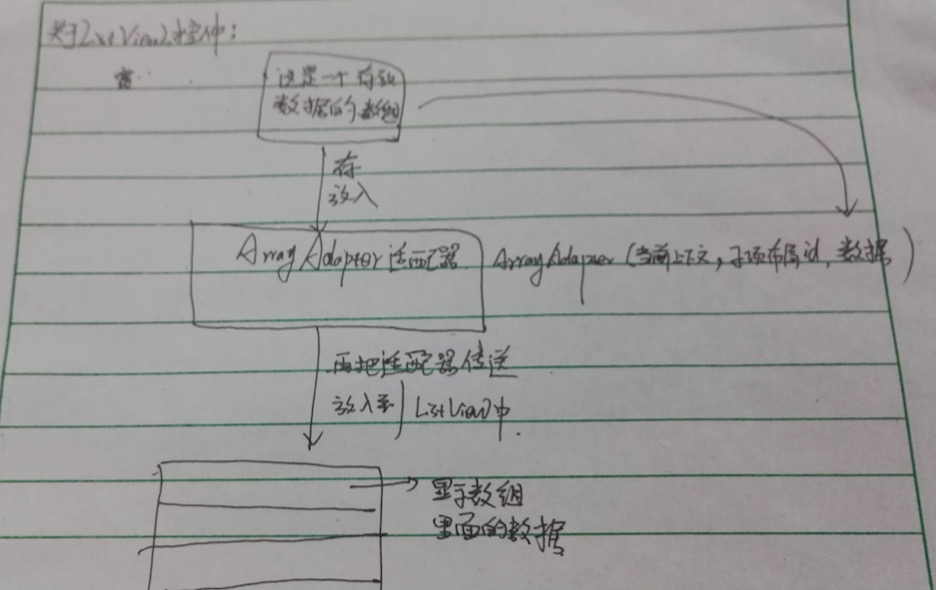 关于ListView控件:
这是一个存放
数据的数组
存
放入
ArrayAdapter适配器
ArrayAdapter(当前上下文,子项布局id,数据)
再把适配器传送
放入到ListView中.
显示数组
里面的数据